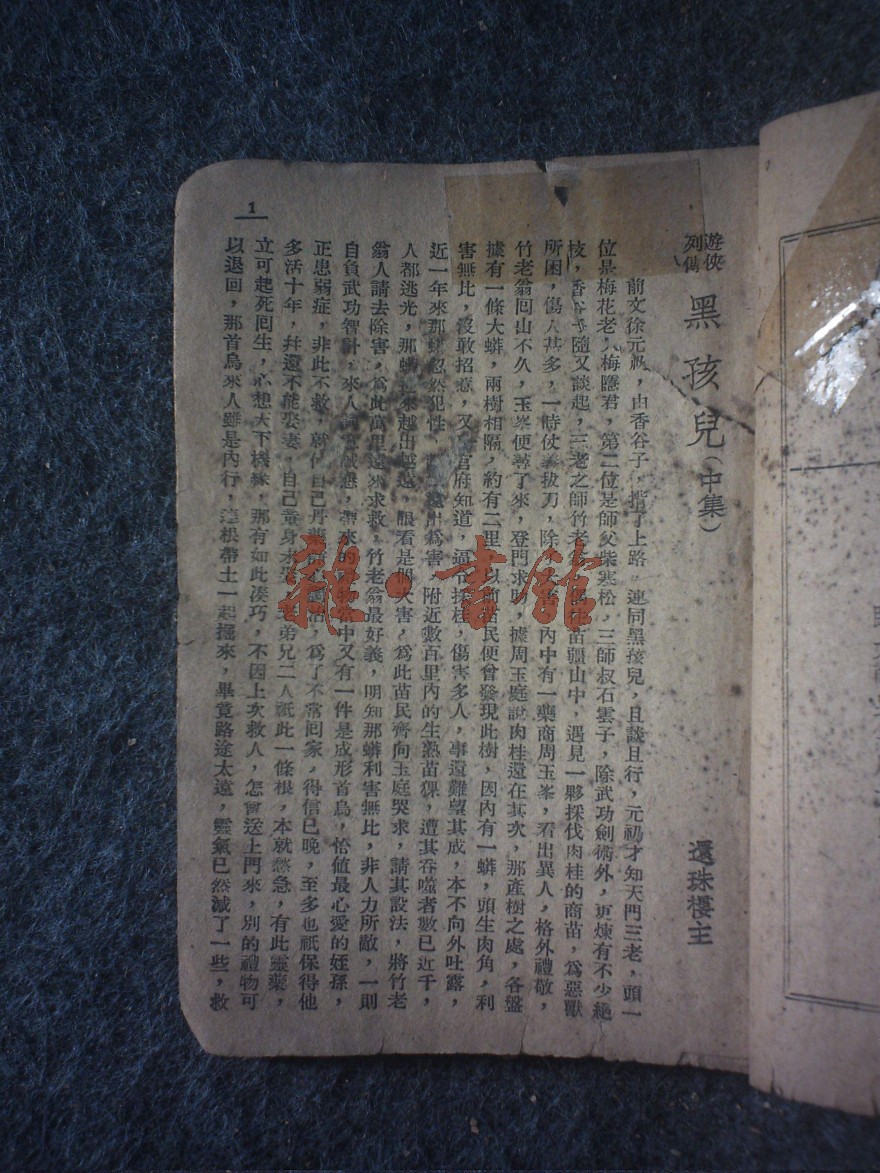 遊俠
列傳 黑孩兒（中集） 還珠樓主
前文徐元礽，由香谷子，揹了上路，連同黑孩兒，且談且行，元礽才知天門三老，頭一
位是梅花老人梅隱君，第二位是師父柴寒松，三師叔石雲子，除武功劍術外，更煉有不少絕
技，香谷子隨又談起，三老之師竹老翁，偶在苗疆山中，遇見一夥採伐肉桂的商苗，為惡獸
所困，傷人甚多，一時仗義拔刀，除 內中有一藥商周玉峯，看出異人，格外禮敬，
竹老翁回山不久，玉峯便尋了來，登門求助，據周玉庭說肉桂還在其次，那產樹之處，各盤
據有一條大蟒，兩樹相隔，約有二里，以前苗民便曾發現此樹，因內有一蟒，頭生肉角，利
害無比，沒敢招惹，又 官府知道，逼令採桂，傷害多人，事還難望其成，本不向外吐露，
近一年來那蟒忽然犯性， 出為害，附近數百里內的生熟苗猓，遭其吞噬者數已近千，
人都逃光，那蟒 越出越遠，眼看是個大害，為此苗民齊向玉庭哭求，請其設法，將竹老
翁人請去除害，為此萬里遠來求救，竹老翁最好義，明知那蟒利害無比，非人力所敵，一則
自負武功智計，來人詞意誠懇，帶來的禮物當中又有一件是成形首烏，恰值最心愛的姪孫，
正患弱症，非此不救，就仗自己丹藥 治，為了不常回家，得信已晚，至多也祇保得他
多活十年，并還不能娶妻，自己童身未娶，老弟兄二人祇此一條根，本就愁急，有此靈藥，
立可起死回生，心想天下機緣，那有如此湊巧，不因上次救人，怎會送上門來，別的禮物可
以退回，那首烏來人雖是內行，連根帶土一起擡來，畢竟路途太遠，靈氣已然減了一些，救
1
雜·書館